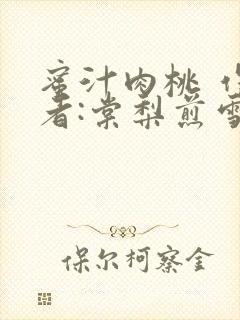 蜜汁肉桃 作
者:棠梨煎雪
保尔柯察金